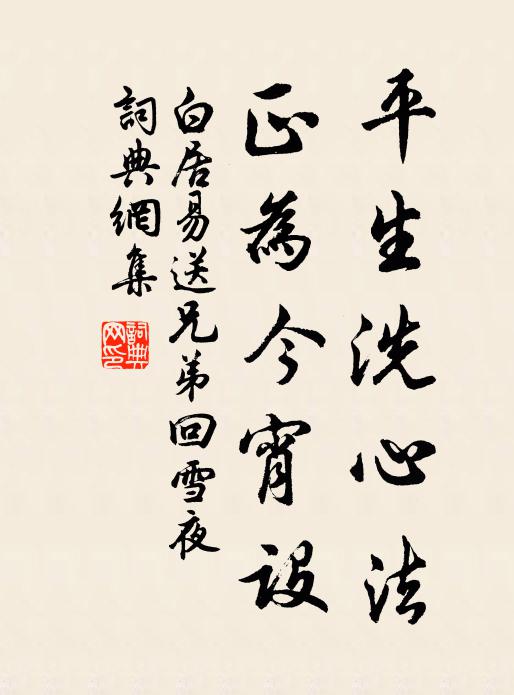 平生洗心法
正為今宵設
白居易送兄弟回雪夜
詞典網集
詞典網印